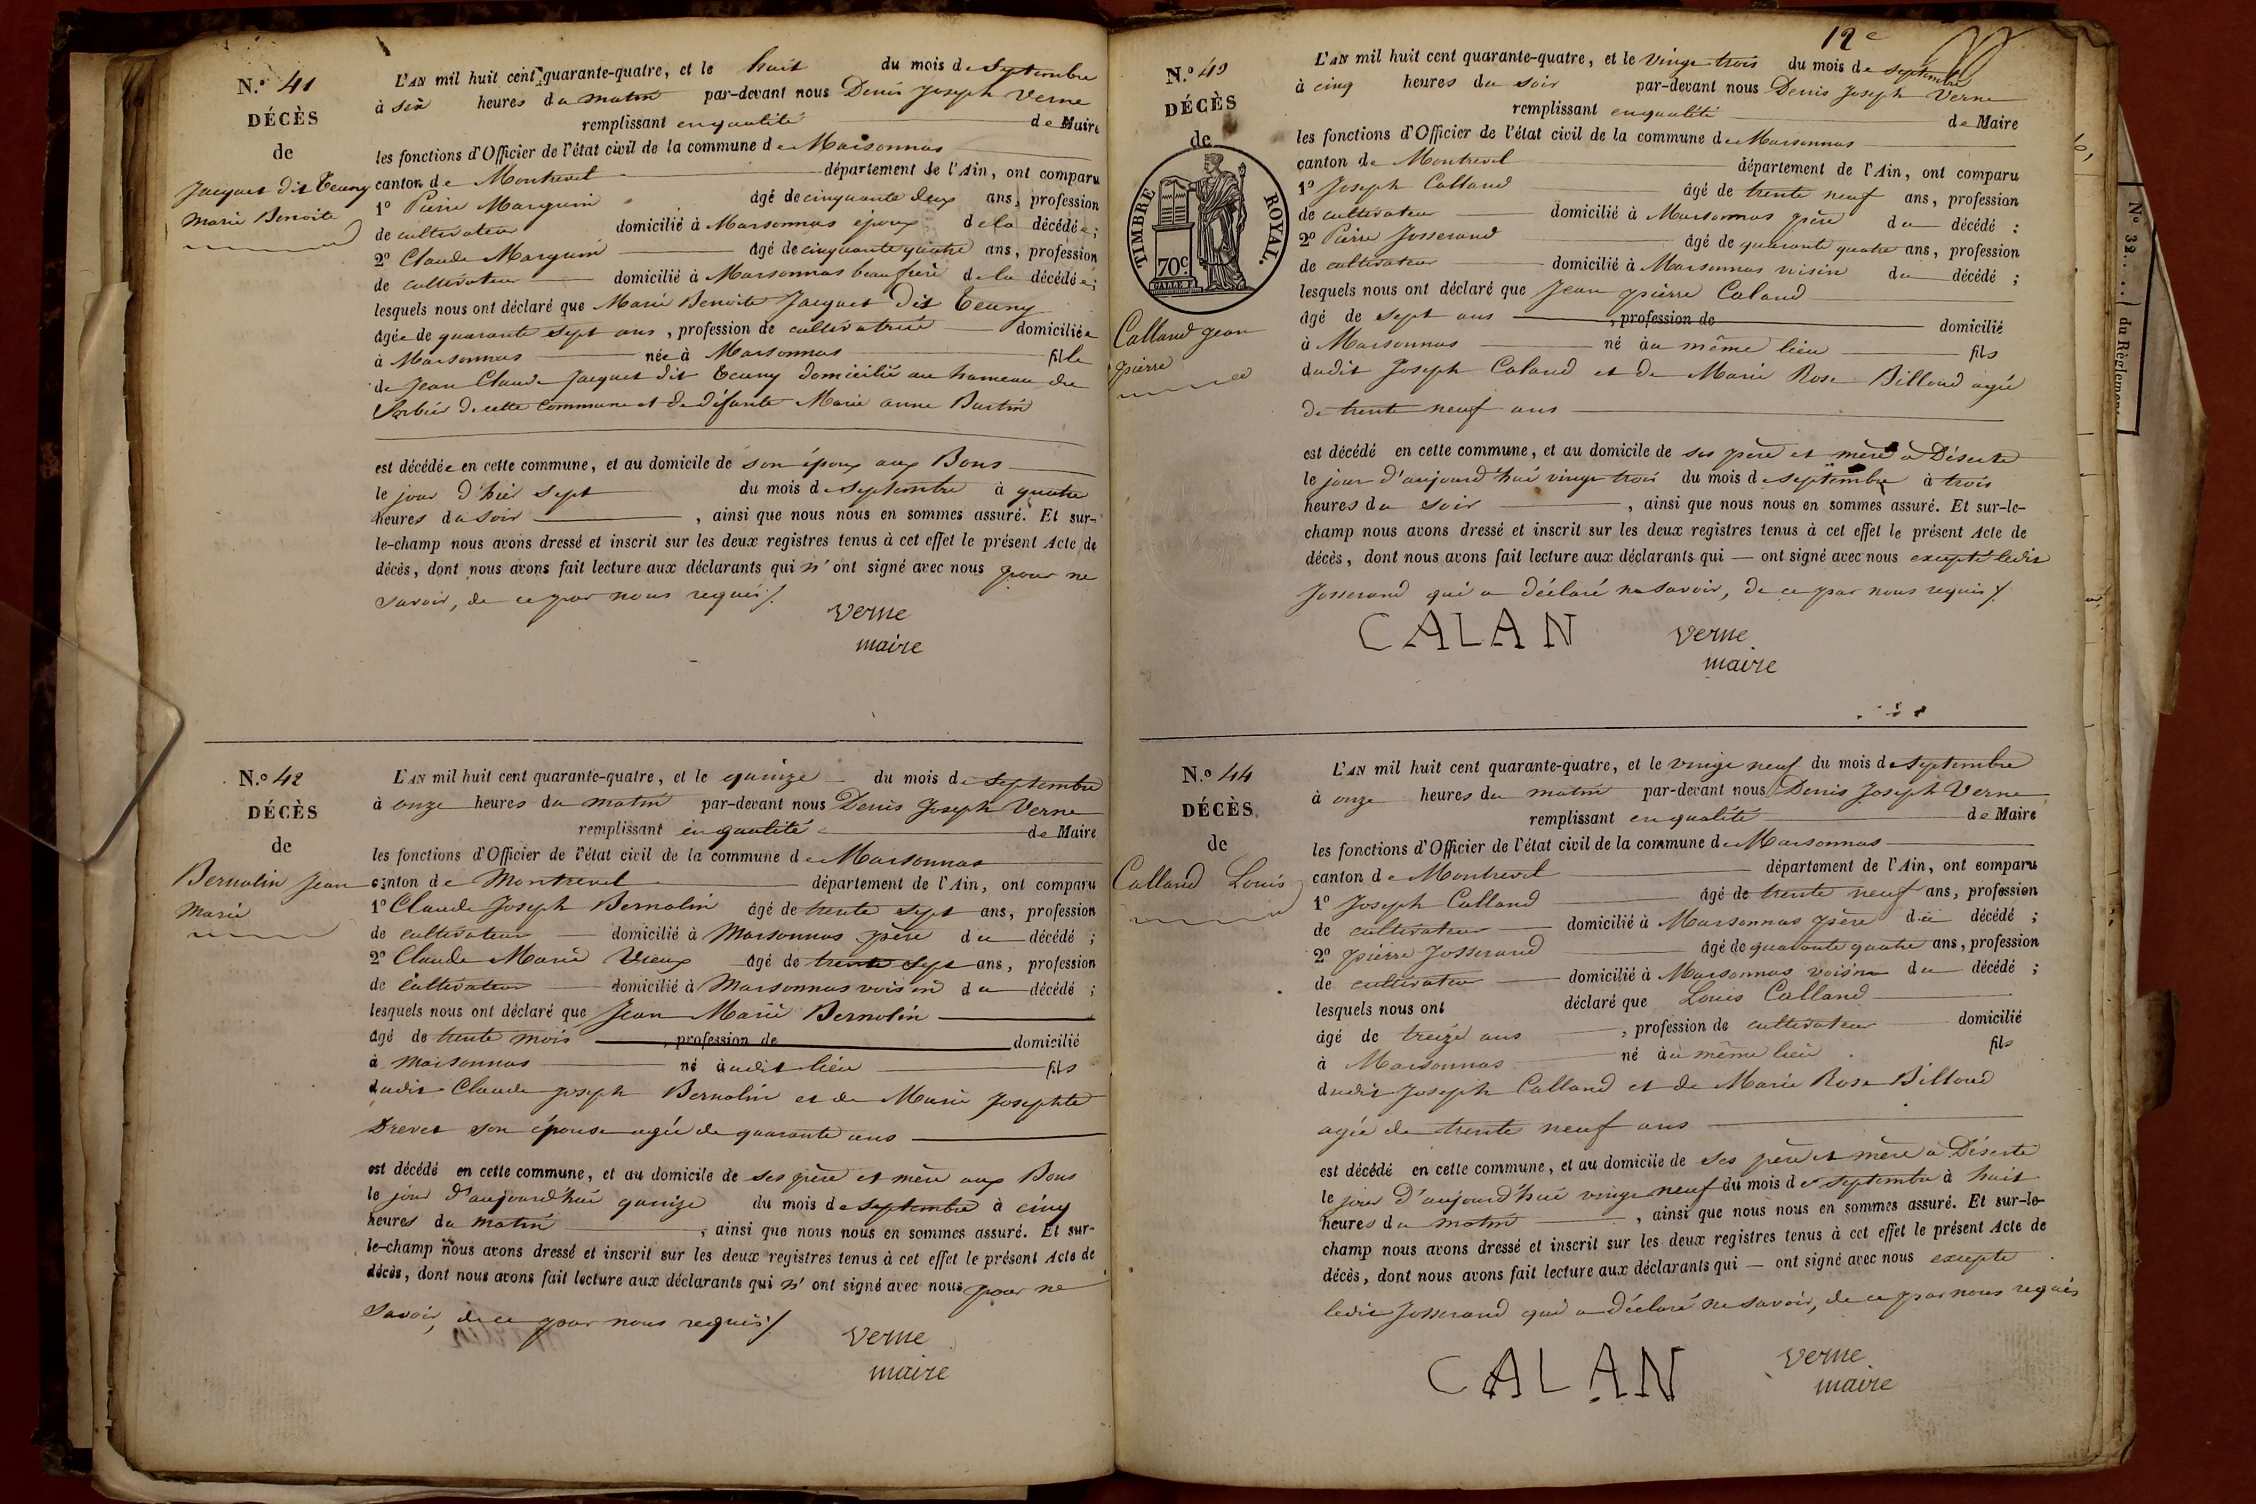 N.º 41
DÉCÈS
de
Jacquet dit Tecuny
Marie Benoite
L'AN mil huit cent quarante-quatre, et le huit du mois de Septembre
à six heures du matin par-devant nous Denis Joseph Verne
remplissant en qualité de Maire
les fonctions d'Officier de l'état civil de la commune de Marsonnas
canton de Montrevel département de l'Ain, ont comparu
1º Pierre Marguin âgé de cinquante deux ans, profession
de cultivateur domicilié à Marsonnas époux de la décédée ;
2º Claude Marguin âgé de cinquante quatre ans, profession
de cultivateur domicilié à Marsonnas beaufrère de la décédée ;
lesquels nous ont déclaré que Marie Benoite Jacquet dit Tecuny
âgée de quarante sept ans, profession de cultivatrice domiciliée
à Marsonnas née à Marsonnas fille
de Jean Claude Jacquet dit Tecuny domicilié au hameau du
Sorbier de cette commune et de défunte Marie anne Burtin
est décédée en cette commune, et au domicile de son époux aux Bons
le jour d'hier sept du mois de septembre à quatre
heures du soir, ainsi que nous nous en sommes assuré. Et sur-
le-champ nous avons dressé et inscrit sur les deux registres tenus à cet effet le présent Acte de
décès, dont nous avons fait lecture aux déclarants qui n'ont signé avec nous pour ne
savoir, de ce par nous requis ⁄.
Verne
maire
N.º 42
DÉCÈS
de
Bernolin Jean
Marie
L'AN mil huit cent quarante-quatre, et le quinze du mois de Septembre
à onze heures du matin par-devant nous Denis Joseph Verne
remplissant en qualité de Maire
les fonctions d'Officier de l'état civil de la commune de Marsonnas
canton de Montrevel département de l'Ain, ont comparu
1º Claude Joseph Bernolin âgé de trente sept ans, profession
de cultivateur domicilié à Marsonnas père du décédé ;
2º Claude Marie Vieux âgé de trente sept ans, profession
de cultivateur domicilié à Marsonnas voisin du décédé ;
lesquels nous ont déclaré que Jean Marie Bernolin
âgé de trente mois, profession de domicilié
à Marsonnas né audit lieu fils
dudit Claude Joseph Bernolin et de Marie Josephte
Drevet son épouse agée de quarante ans
est décédé en cette commune, et au domicile de ses père et mère aux Bons
le jour d'aujourd'hui quinze du mois de septembre à cinq
heures du matin, ainsi que nous nous en sommes assuré. Et sur-
le-champ nous avons dressé et inscrit sur les deux registres tenus à cet effet le présent Acte de
décès, dont nous avons fait lecture aux déclarants qui n'ont signé avec nous pour ne
savoir, de ce par nous requis ⁄.
Verne
maire
12e
N.º 43
DÉCÈS
de
TIMBRE ROYAL.
70c
Calland Jean
pierre
L'AN mil huit cent quarante-quatre, et le vingt trois du mois de septembre
à cinq heures du soir par-devant nous Denis Joseph Verne
remplissant en qualité de Maire
les fonctions d'Officier de l'état civil de la commune de Marsonnas
canton de Montrevel département de l'Ain, ont comparu
1º Joseph Calland âgé de trente neuf ans, profession
de cultivateur domicilié à Marsonnas père du décédé ;
2º Pierre Josserand âgé de quarante quatre ans, profession
de cultivateur domicilié à Marsonnas voisin du décédé ;
lesquels nous ont déclaré que Jean pierre Caland
âgé de sept ans, profession de domicilié
à Marsonnas né au même lieu fils
dudit Joseph Caland et de Marie Rose Billoud agée
de trente neuf ans
est décédé en cette commune, et au domicile de ses père et mère à Déserte
le jour d'aujourd'hui vingt trois du mois de septembre à trois
heures du soir, ainsi que nous nous en sommes assuré. Et sur-le-
champ nous avons dressé et inscrit sur les deux registres tenus à cet effet le présent Acte de
décès, dont nous avons fait lecture aux déclarants qui — ont signé avec nous excepté ledit
Josserand qui a déclaré ne savoir, de ce par nous requis ⁄.
CALAN
Verne
maire
N.º 44
DÉCÈS
de
Calland Louis
L'AN mil huit cent quarante-quatre, et le vingt neuf du mois de Septembre
à onze heures du matin par-devant nous Denis Joseph Verne
remplissant en qualité de Maire
les fonctions d'Officier de l'état civil de la commune de Marsonnas
canton de Montrevel département de l'Ain, ont comparu
1º Joseph Calland âgé de trente neuf ans, profession
de cultivateur domicilié à Marsonnas père du décédé ;
2º pierre Josserand âgé de quarante quatre ans, profession
de cultivateur domicilié à Marsonnas voisin du décédé ;
lesquels nous ont déclaré que Louis Calland
âgé de treize ans, profession de cultivateur domicilié
à Marsonnas né au même lieu fils
dudit Joseph Calland et de Marie Rose Billoud
agée de trente neuf ans
est décédé en cette commune, et au domicile de ses père et mère à Déserte
le jour d'aujourd'hui vingt neuf du mois de septembre à huit
heures du matin, ainsi que nous nous en sommes assuré. Et sur-le-
champ nous avons dressé et inscrit sur les deux registres tenus à cet effet le présent Acte de
décès, dont nous avons fait lecture aux déclarants qui — ont signé avec nous excepté
ledit Josserand qui a déclaré ne savoir, de ce par nous requis
CALAN
Verne
maire
Nº 32
du Règlement